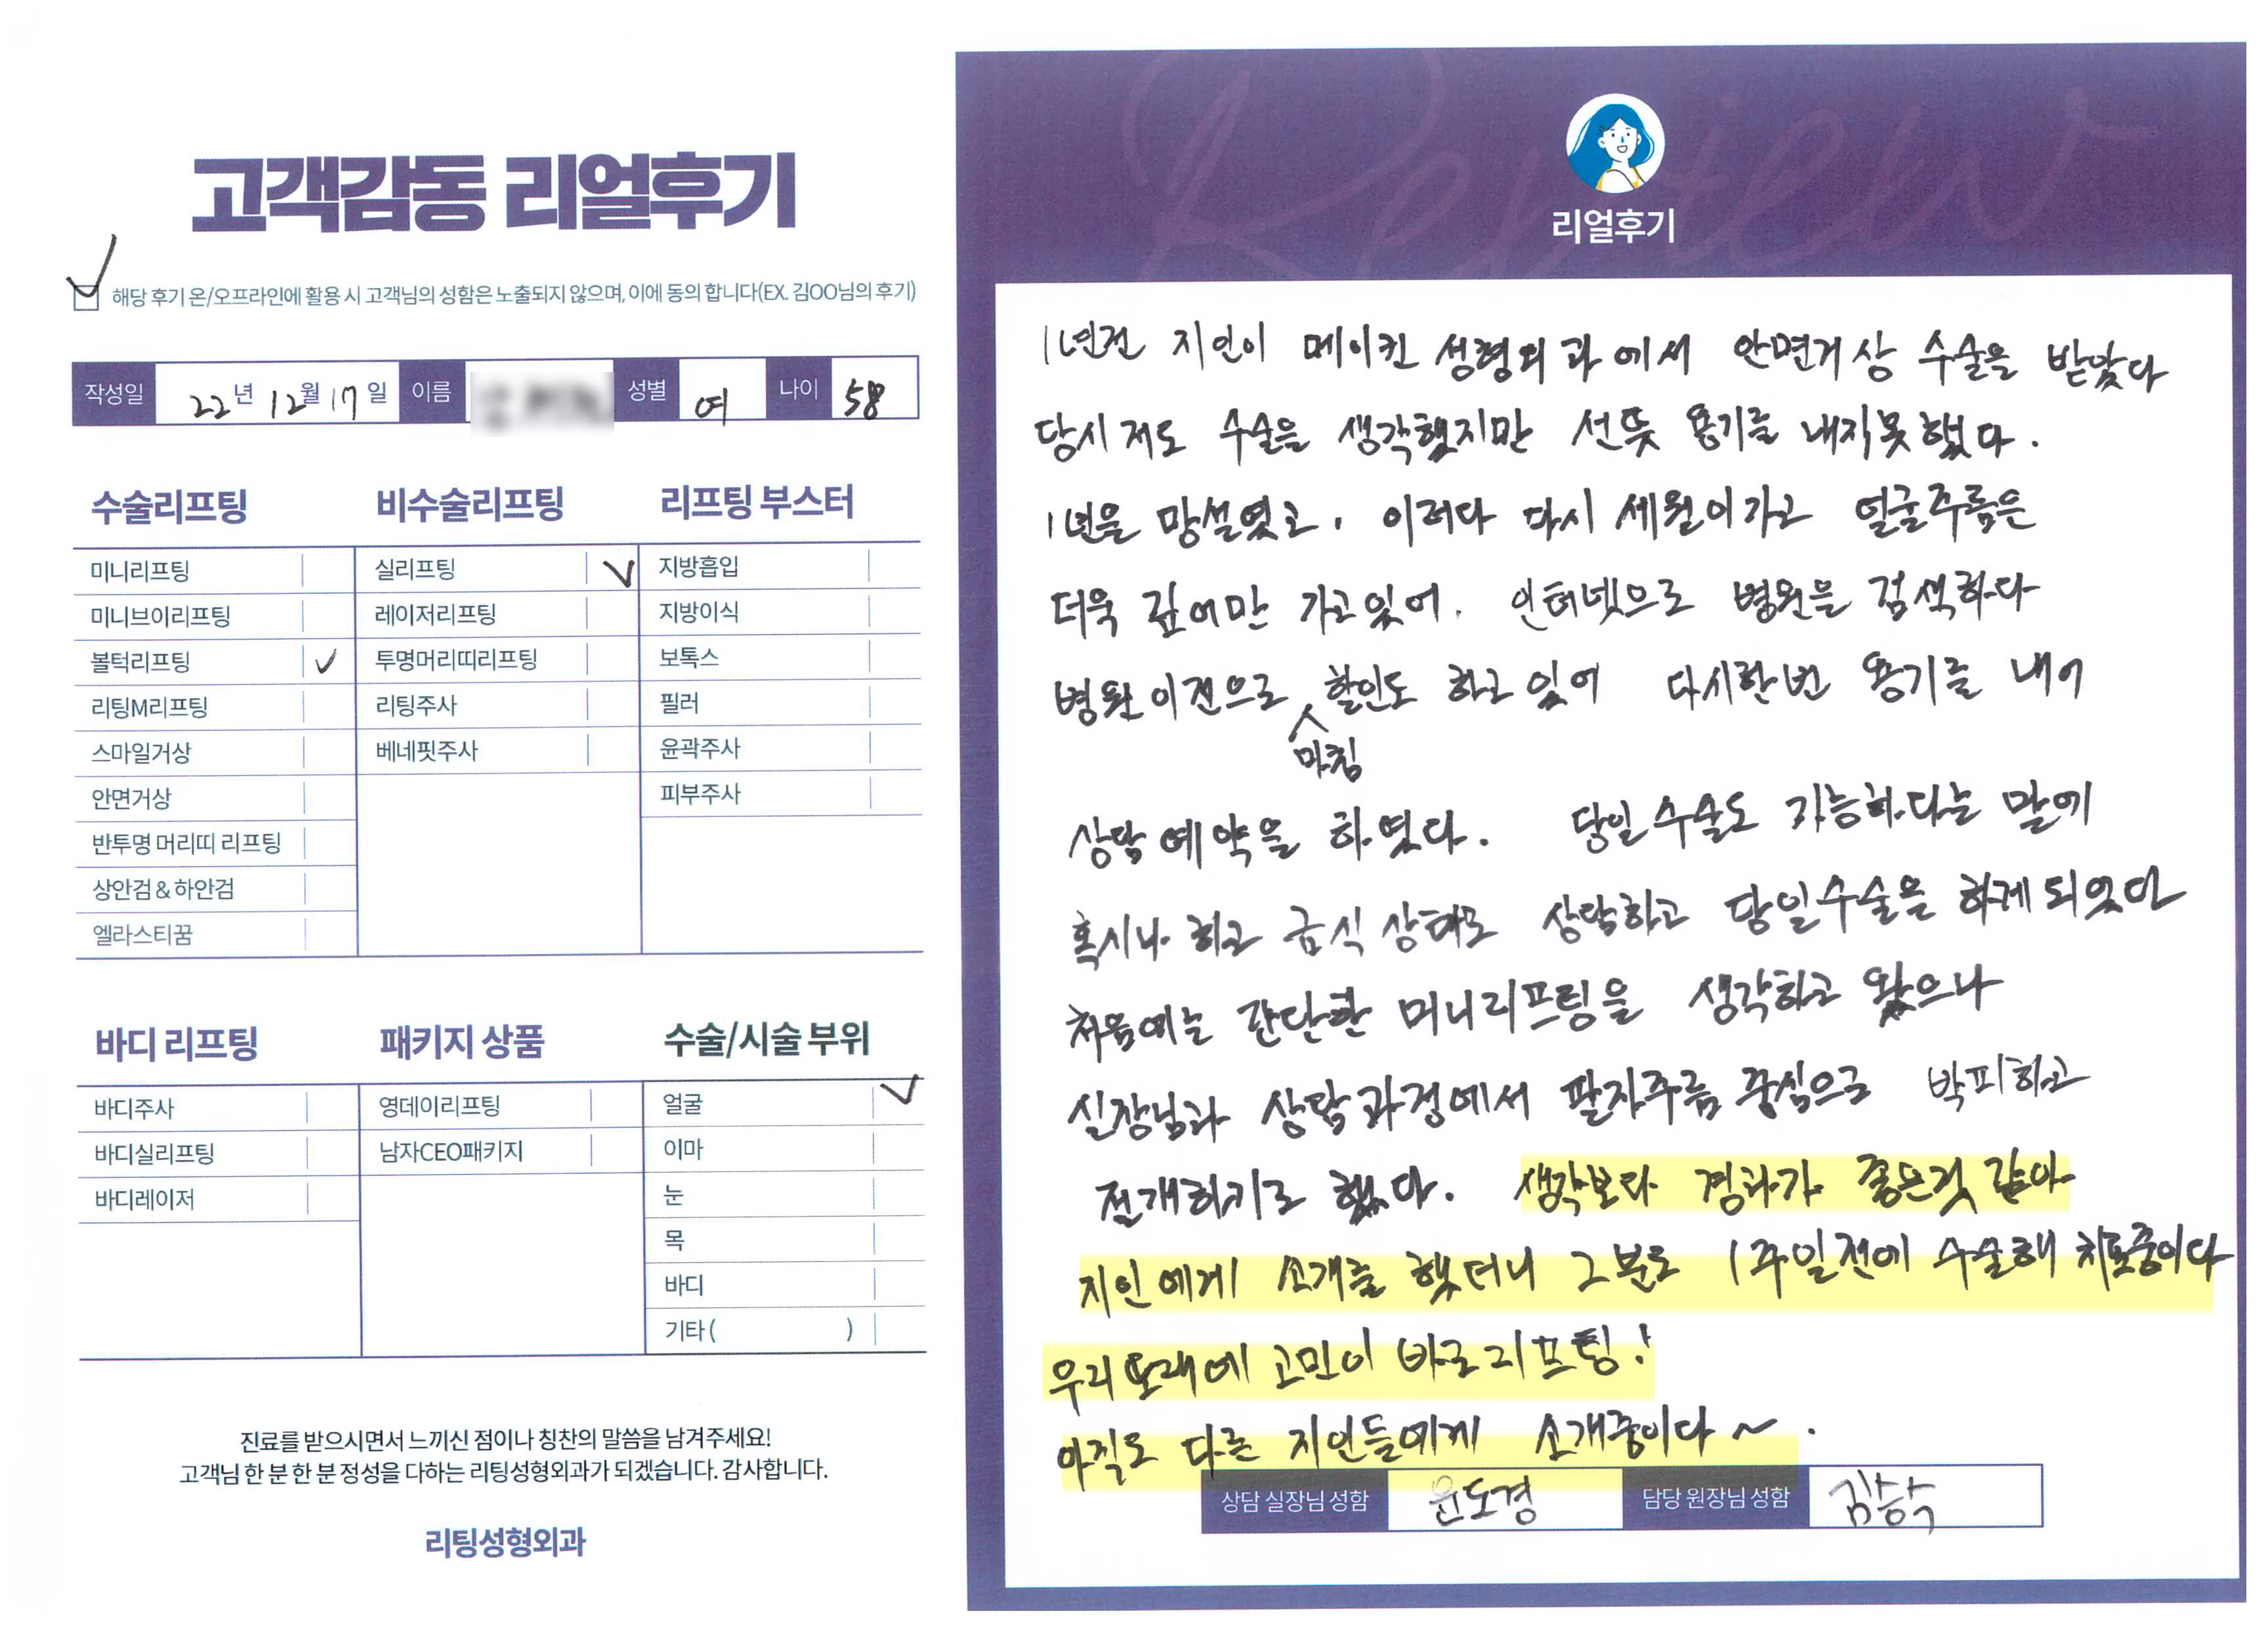 고객감동 리얼후기
해당 후기 온/오프라인에 활용 시 고객님의 성함은 노출되지 않으며, 이에 동의 합니다(EX. 김OO님의 후기)
작성일 22년 12월 17일 이름 성별 여 나이 58
수술리프팅
미니리프팅
미니브이리프팅
볼턱리프팅
리팅M리프팅
스마일거상
안면거상
반투명 머리띠 리프팅
상안검 & 하안검
엘라스티꿈
비수술리프팅
실리프팅
레이저리프팅
투명머리띠리프팅
리팅주사
베네핏주사
리프팅 부스터
지방흡입
지방이식
보톡스
필러
윤곽주사
피부주사
바디 리프팅
바디주사
바디실리프팅
바디레이저
패키지 상품
영데이리프팅
남자CEO패키지
수술/시술 부위
얼굴
이마
눈
목
바디
기타 ( )
진료를 받으시면서 느끼신 점이나 칭찬의 말씀을 남겨주세요!
고객님 한 분 한 분 정성을 다하는 리팅성형외과가 되겠습니다. 감사합니다.
리팅성형외과
Review
리얼후기
1년전 지인이 메이킨 성형외과에서 안면거상 수술을 받았다
당시 저도 수술을 생각했지만 선뜻 용기를 내지못했다.
1년을 망설였고, 이러다 다시 세월이가고 얼굴주름은
더욱 깊어만 가고있어. 인터넷으로 병원을 검색하다
병원이전으로 마침 할인도 하고 있어 다시한번 용기를 내어
상담예약을 하였다. 당일수술도 가능하다는 말에
혹시나 하고 금식 상태로 상담하고 당일수술을 하게되었다
처음에는 간단한 미니리프팅을 생각하고 왔으나
실장님과 상담과정에서 팔자주름 중심으로 박피하고
전개하기로 했다. 생각보다 경과가 좋은것 같아
지인에게 소개를 했더니 그분도 1주일전에 수술해 치료중이다
우리또래에 고민이 바로 리프팅!
아직도 다른 지인들에게 소개중이다~.
상담 실장님 성함 윤도경 담당 원장님 성함